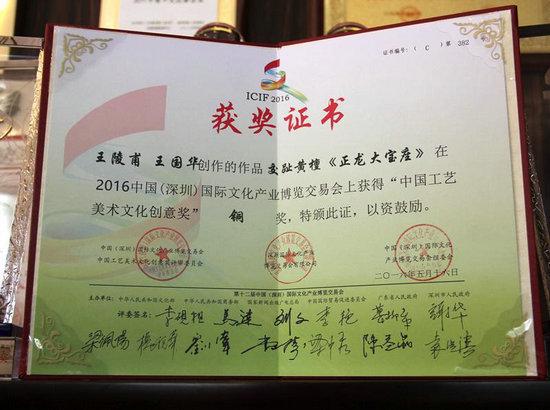 证书编号:( C )第 382
ICIF 2016
获奖证书
王陵甫 王国华创作的作品 交趾黄檀《正龙大宝座》在
2016中国(深圳)国际文化产业博览交易会上获得“中国工艺
美术文化创意奖” 铜 奖,特颁此证,以资鼓励。
中国(深圳)国际文化产业博览交易会
中国工艺美术文化创意奖评审委员会
深圳国际文化产业
博览交易会有限公司
中国(深圳)国际文化
产业博览交易会组委会
二〇一六年五月十六日
第十二届中国(深圳)国际文化产业博览交易会
主办单位: 中华人民共和国文化部 中华人民共和国商务部 国家新闻出版广电总局 中国国际贸易促进委员会 广东省人民政府 深圳市人民政府
评委签名: